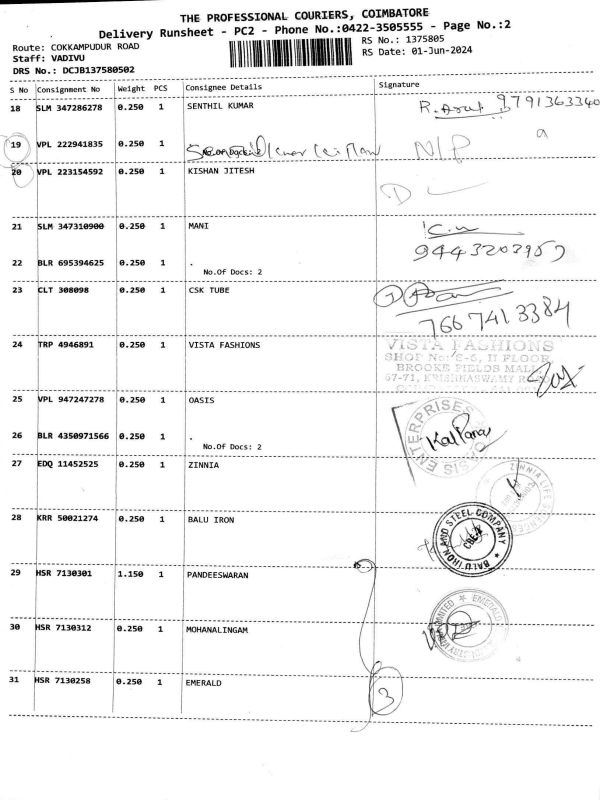 THE PROFESSIONAL COURIERS, COIMBATORE
Delivery Runsheet - PC2 - Phone No.:0422-3505555 - Page No.:2
Route: COKKAMPUDUR ROAD RS No.: 1375805
Staff: VADIVU RS Date: 01-Jun-2024
DRS No.: DCJB137580502
S No Consignment No Weight PCS Consignee Details Signature
18 SLM 347286278 0.250 1 SENTHIL KUMAR R. 9791363340
19 VPL 222941835 0.250 1 N/P
20 VPL 223154592 0.250 1 KISHAN JITESH D
21 SLM 347310900 0.250 1 MANI
9443203957
22 BLR 695394625 0.250 1 .
No.Of Docs: 2
23 CLT 308098 0.250 1 CSK TUBE
7667413384
24 TRP 4946891 0.250 1 VISTA FASHIONS VISTA FASHIONS
SHOP No: E-6, II FLOOR
BROOKE FIELDS MALL
67-71, KRISHNASWAMY
25 VPL 947247278 0.250 1 OASIS
OASIS ENTERPRISES
Kalpana
26 BLR 4350971566 0.250 1 .
No.Of Docs: 2
27 EDQ 11452525 0.250 1 ZINNIA
ZINNIA LIFE SCIENCES
28 KRR 50021274 0.250 1 BALU IRON
BALU IRON AND STEEL COMPANY
CBE-1
29 HSR 7130301 1.150 1 PANDEESWARAN
30 HSR 7130312 0.250 1 MOHANALINGAM
EMERALD
LIMITED
31 HSR 7130258 0.250 1 EMERALD 3